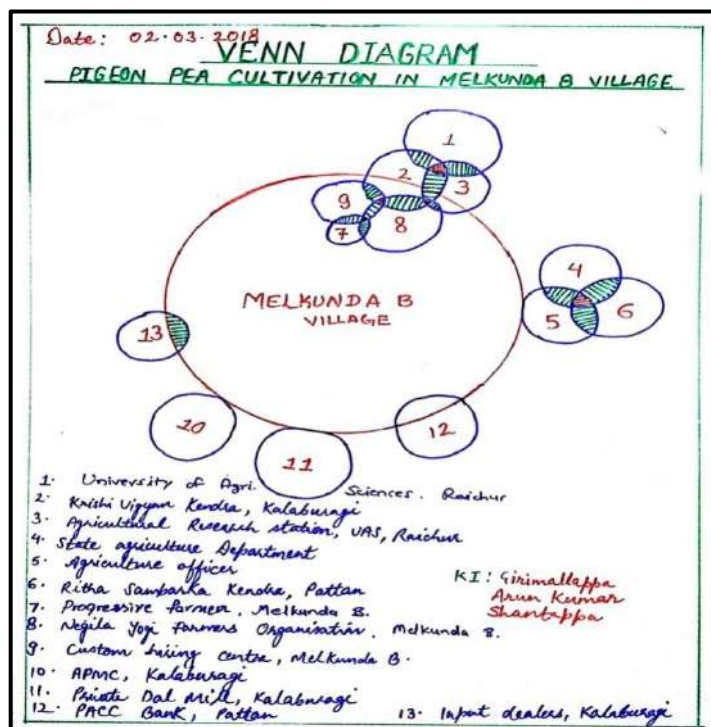 Date: 02.03.2018
VENN DIAGRAM
PIGEON PEA CULTIVATION IN MELKUNDA B VILLAGE
1
2
3
9
8
7
4
5
6
MELKUNDA B
VILLAGE
13
10
11
12
1. University of Agri. Sciences. Raichur
2. Krishi Vigyan Kendra, Kalaburagi
3. Agricultural Research station, UAS, Raichur
4. State agriculture Department
5. Agriculture officer
6. Ritha Sambarka Kendra, Pattan
7. Progressive farmer, Melkunda B.
8. Negila Yogi farmers Organisation, Melkunda B.
9. Custom hiring centre, Melkunda B.
10. APMC, Kalaburagi
11. Private Dal Mill, Kalaburagi
12. PACC Bank, Pattan
13. Input dealers, Kalaburagi
KI: Girimallappa
Arun Kumar
Shantappa